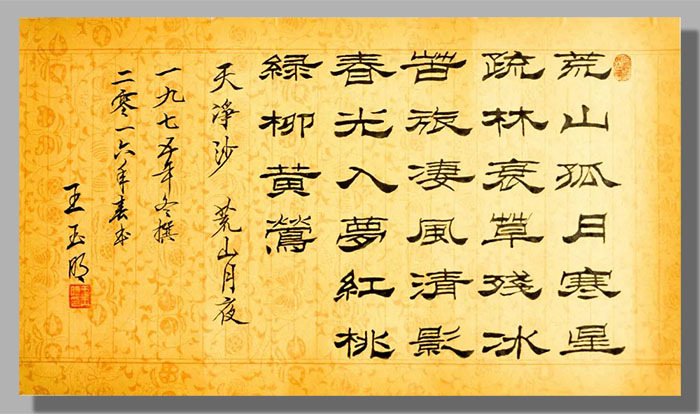 荒山孤月寒星
疏林衰草殘冰
苦旅凄風清影
春光入夢紅桃
緑柳黄鶯
天淨沙 荒山月夜
一九七五年冬撰
二零一六年春书
王玉明